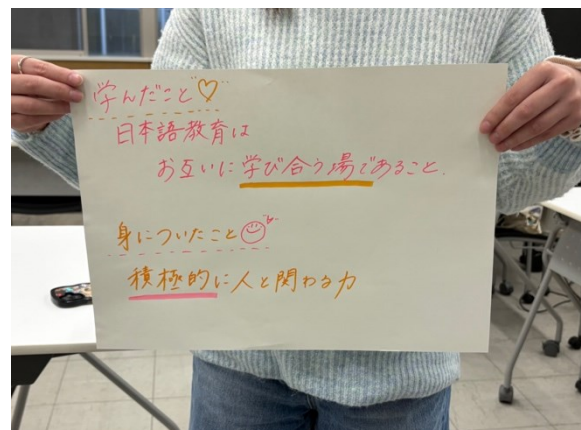 学んだこと♡
日本語教育は
お互いに学び合う場であること.
身についたこと
積極的に人と関わる力